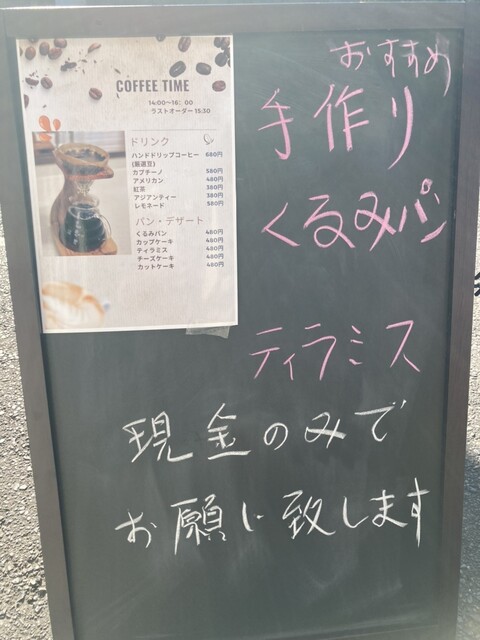 COFFEE TIME
14:00〜16:00
ラストオーダー 15:30
ドリンク
ハンドドリップコーヒー 680円
(厳選豆)
カプチーノ 580円
アメリカン 480円
紅茶 380円
アジアンティー 380円
レモネード 580円
パン・デザート
くるみパン 480円
カップケーキ 480円
ティラミス 480円
チーズケーキ 480円
カットケーキ 480円
おすすめ
手作り
くるみパン
ティラミス
現金のみで
お願い致します